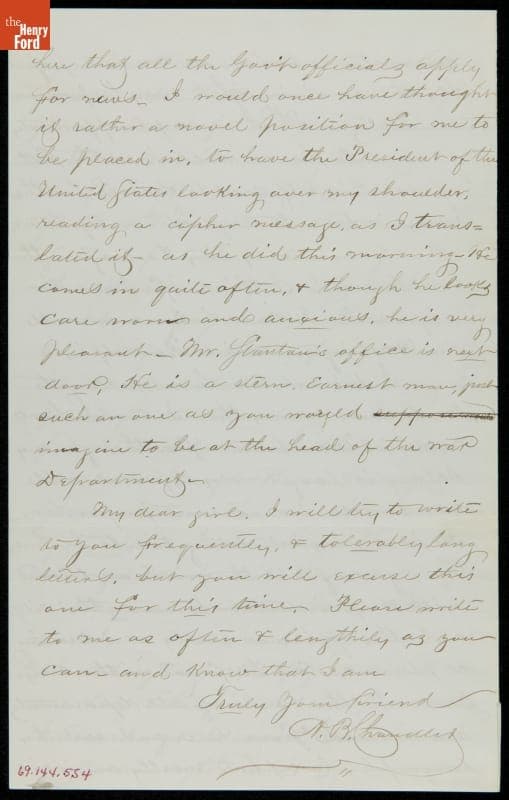 the
Henry
Ford
here that all the Gov't officials apply
for news — I would once have thought
it rather a novel position for me to
be placed in, to have the President of the
United States looking over my shoulder,
reading a cipher message, as I trans=
lated it — as he did this morning — He
comes in quite often, & though he looks
care worn and anxious, he is very
pleasant — Mr. Stanton's office is next
door, He is a stern, earnest man, just
such an one as you would
imagine to be at the head of the war
Department —
My dear girl. I will try to write
to you frequently, & tolerably long
letters, but you will excuse this
one for this time — Please write
to me as often & lengthily as you
can — and know that I am
Truly Your friend
A. B. Chandler
69.144.554